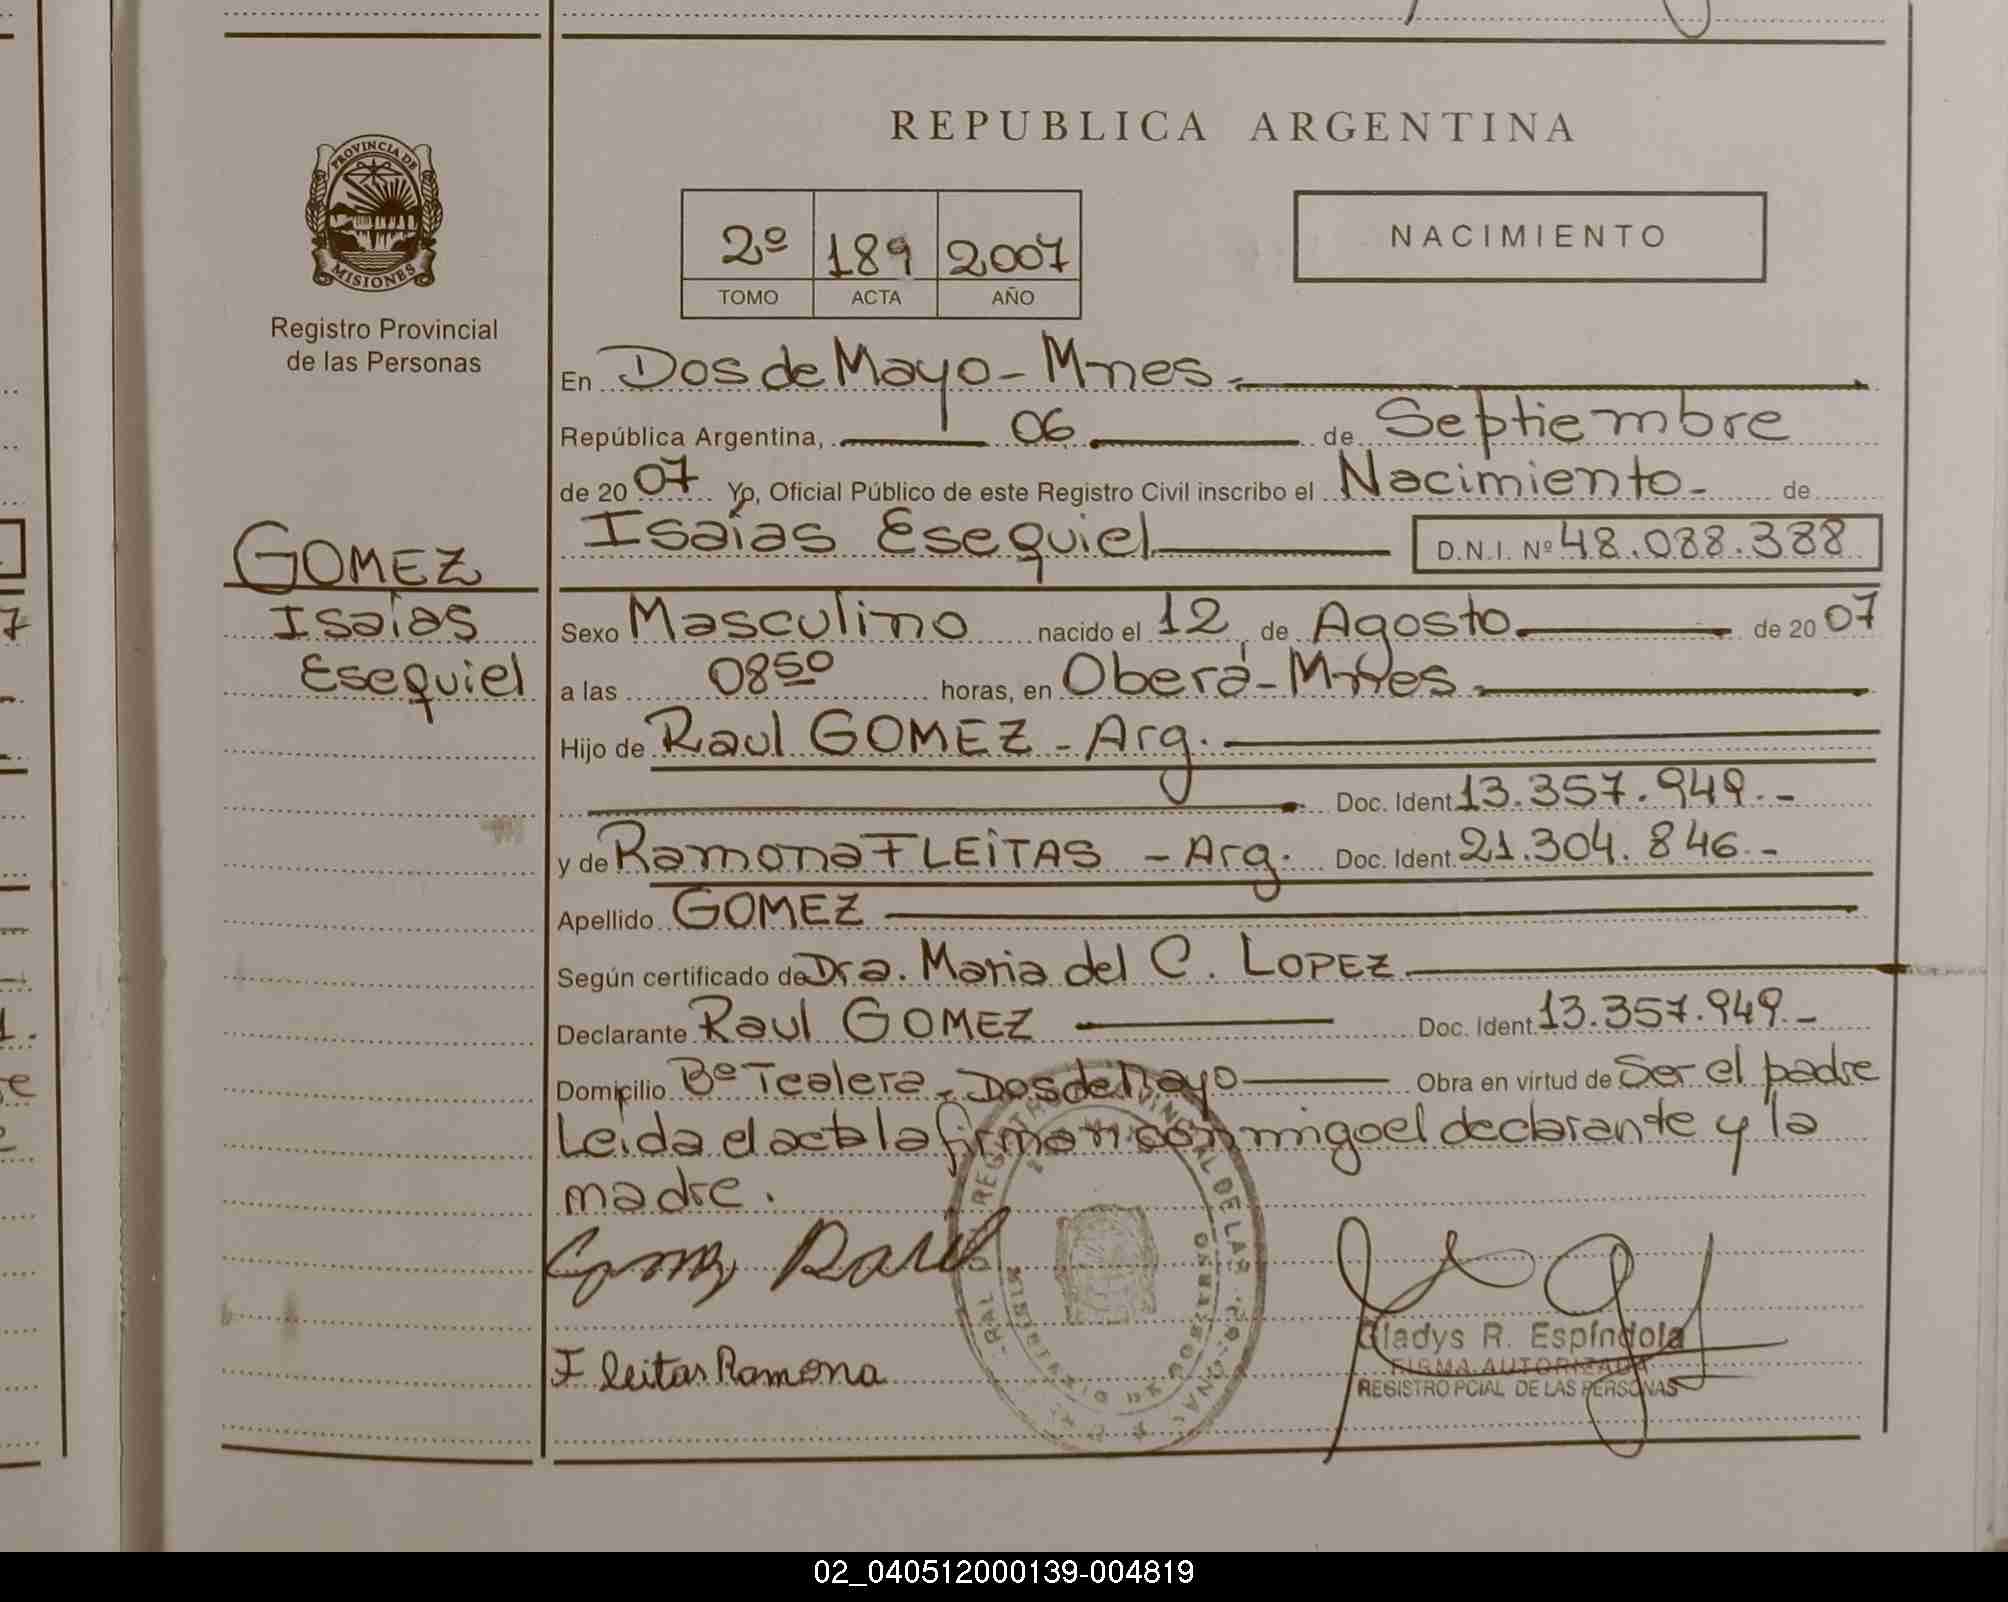 REPUBLICA ARGENTINA
PROVINCIA DE
MISIONES
Registro Provincial
de las Personas
2º 189 2007
TOMO ACTA AÑO
NACIMIENTO
En Dos de Mayo - Mnes.
República Argentina, 06 de Septiembre
de 2007 Yo, Oficial Público de este Registro Civil inscribo el Nacimiento - de
Isaías Esequiel D.N.I. Nº 48.088.388
GOMEZ
Isaías
Esequiel
Sexo Masculino nacido el 12 de Agosto de 2007
a las 08 50 horas, en Oberá - Mnes.
Hijo de Raul GOMEZ - Arg.
Doc. Ident. 13.357.949.-
y de Ramona FLEITAS - Arg. Doc. Ident. 21.304.846.-
Apellido GOMEZ
Según certificado de Dra. Maria del C. LOPEZ
Declarante Raul GOMEZ Doc. Ident. 13.357.949.-
Domicilio Bº Tealera - Dos de Mayo Obra en virtud de Ser el padre
Leida el acta la firman conmigo el declarante y la
madre.
Gomez Raul
Fleitas Ramona
Gladys R. Espíndola
FIRMA AUTORIZADA
REGISTRO PCIAL DE LAS PERSONAS
02_040512000139-004819